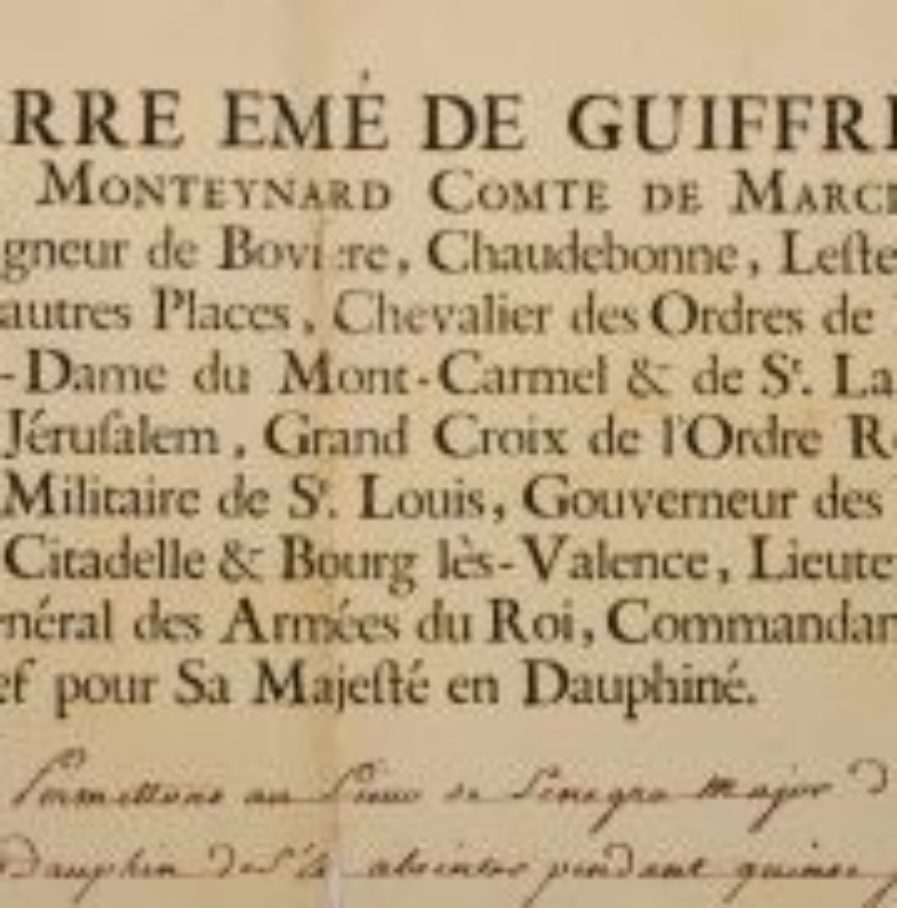 RRE EMÉ DE GUIFFRE
MONTEYNARD COMTE DE MARCI
gneur de Boviere, Chaudebonne, Leſte
autres Places, Chevalier des Ordres de
-Dame du Mont-Carmel & de Sᵗ. La
Jéruſalem, Grand Croix de l'Ordre R
Militaire de Sᵗ. Louis, Gouverneur des
Citadelle & Bourg lès-Valence, Lieute
néral des Armées du Roi, Commandan
ef pour Sa Majeſté en Dauphiné.
Permettons au Sieur de Major
Dauphin de s'absenter pendant quinze